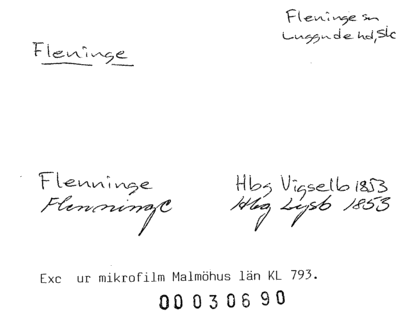 Fleninge
Fleninge sn
Luggude hd, Sk
Flenninge Hbg Vigselb 1853
Flenninge Hbg Lysb 1853
Exc ur mikrofilm Malmöhus län KL 793.
00030690